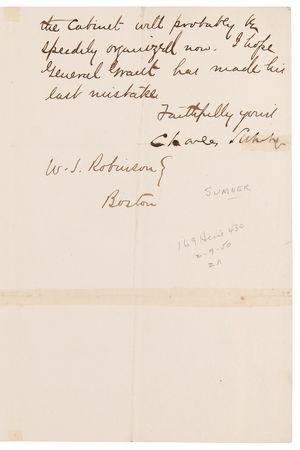 the Cabinet will probably be
speedily organized now. I hope
General Grant has made his
last mistake
Faithfully yours
Charles Sumner
W. S. Robinson
Boston
SUMNER
2-9-50